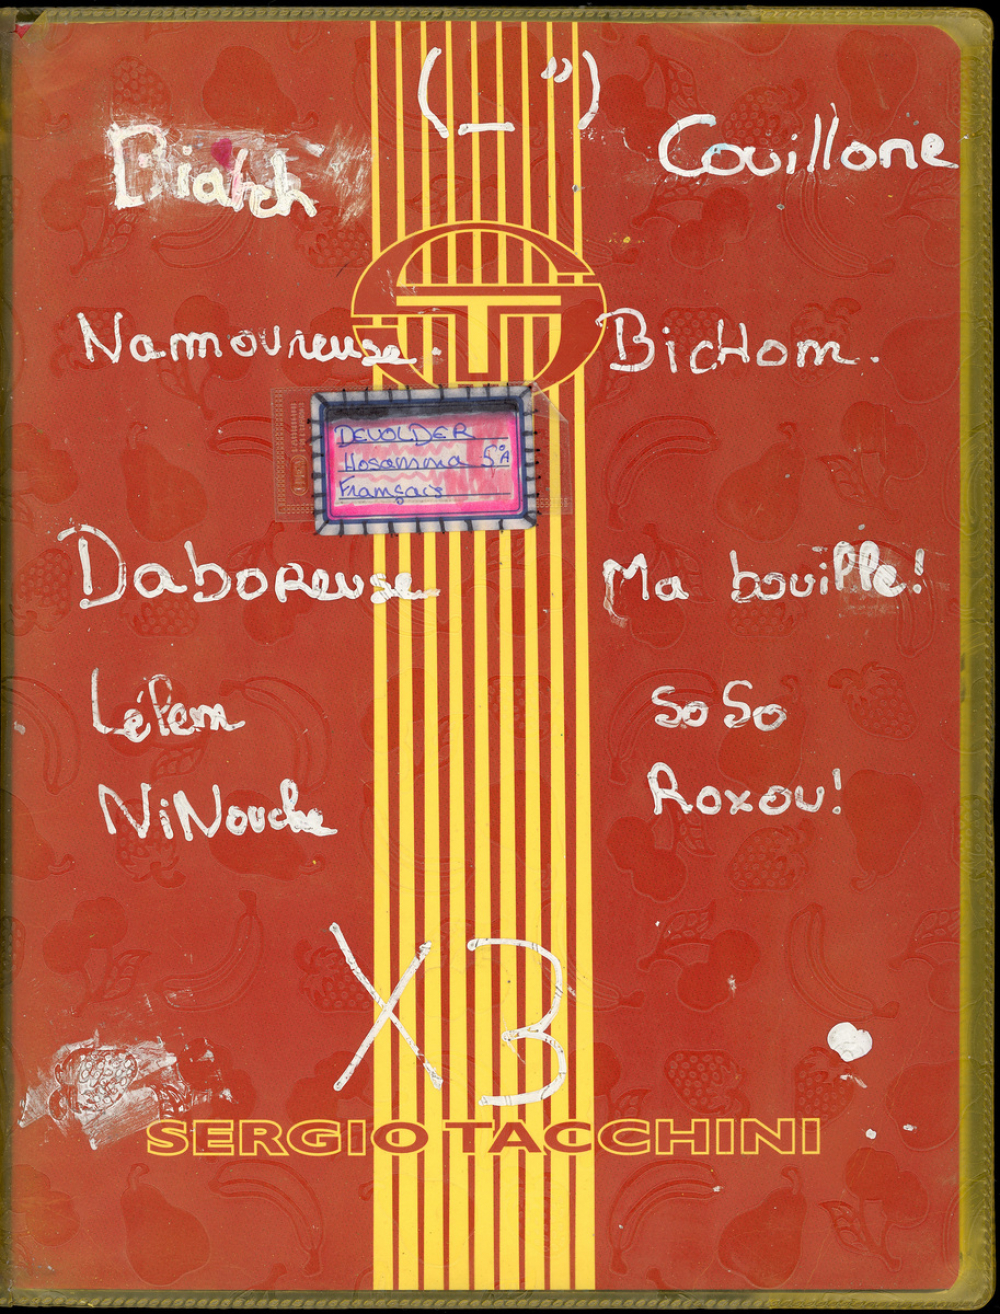 (_")
Biatch
Couillone
Namoureuse.
Bichom.
DEVOLDER
Hosanna 5°A
Français
Daboreuse
Ma bouille!
Lélem
SoSo
NiNouche
Roxou!
X3
SERGIO TACCHINI